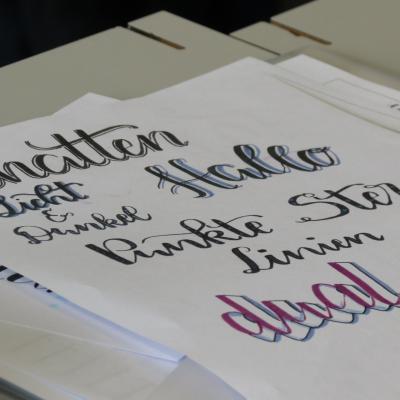 hatten
Hallo
Licht
&
Dunkel
Punkte
Ster
Linien